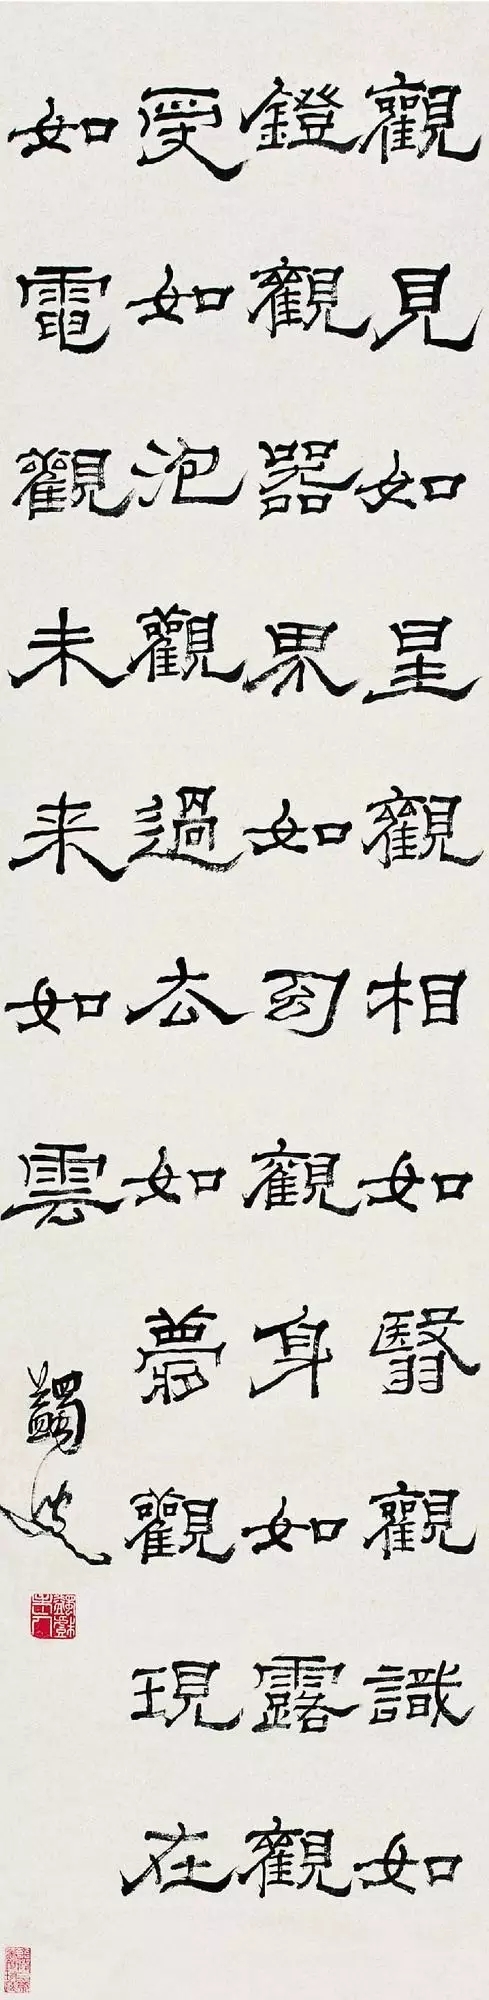 觀見如星觀相如翳觀識如
鐙觀器界如幻觀身如露觀
受如泡觀過去如夢觀現在
如電觀未来如雲
蠲叟